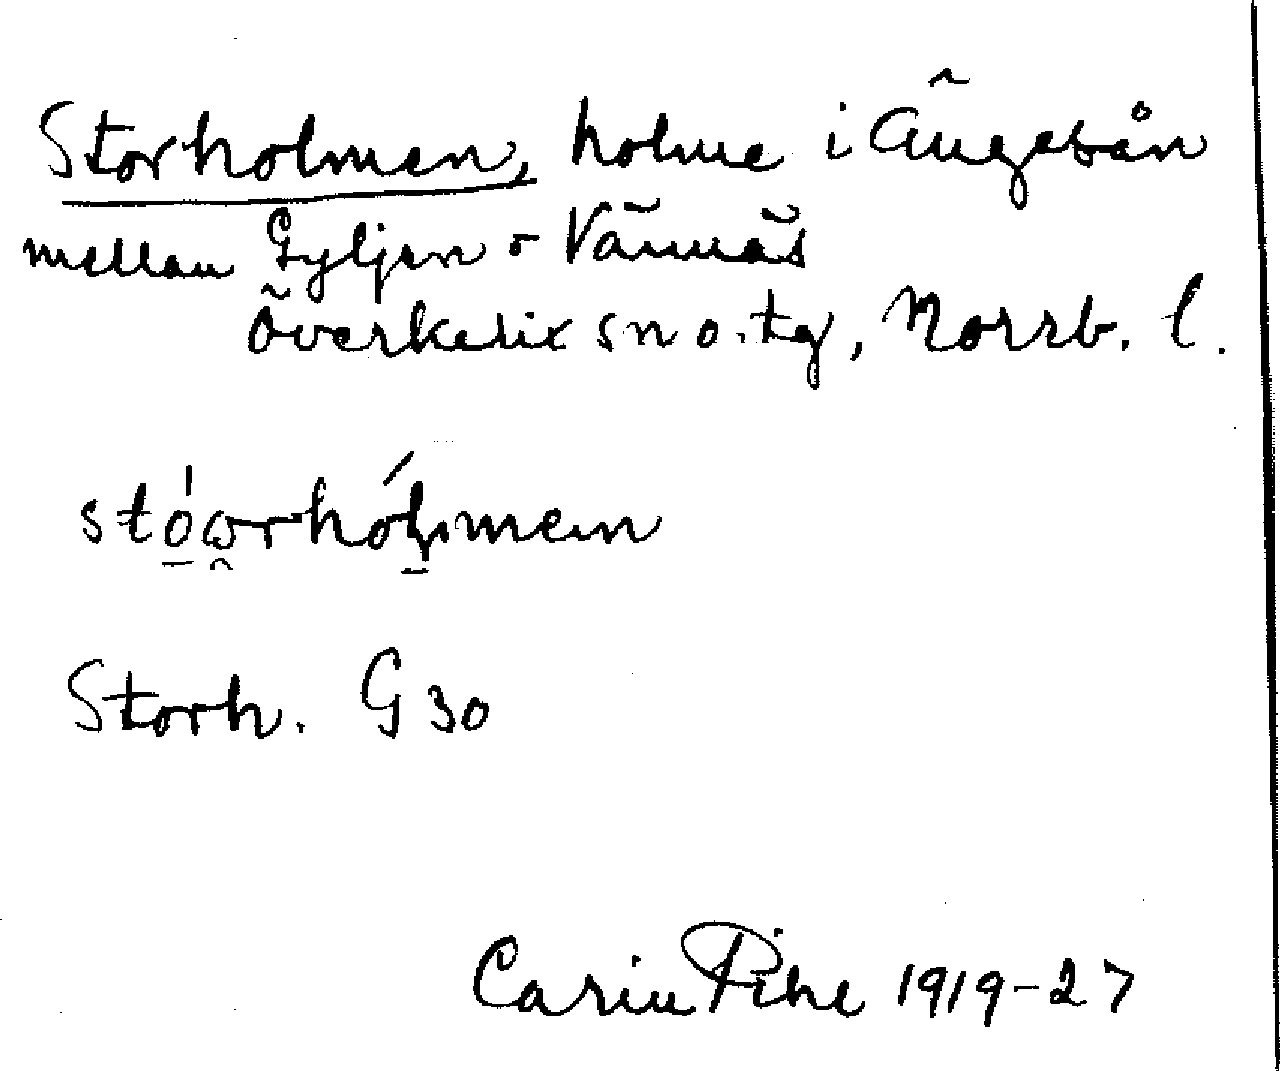 Storholmen, holme i Ängesån
mellan Gyljen o Vännäs
Överkalix sn o. tg, Norrb. l.
Storh. G 30
Carin Pihl 1919-27